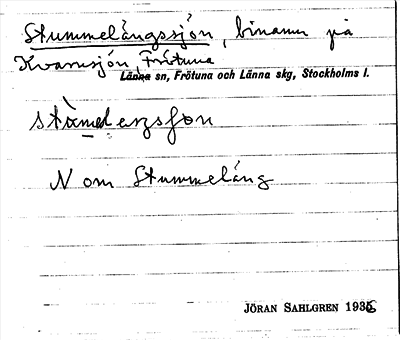 Stummelångssjön, binamn på
Kvarnsjön, Frötuna
Länna sn, Frötuna och Länna skg, Stockholms l.
N om Stummelång
JÖRAN SAHLGREN 1936